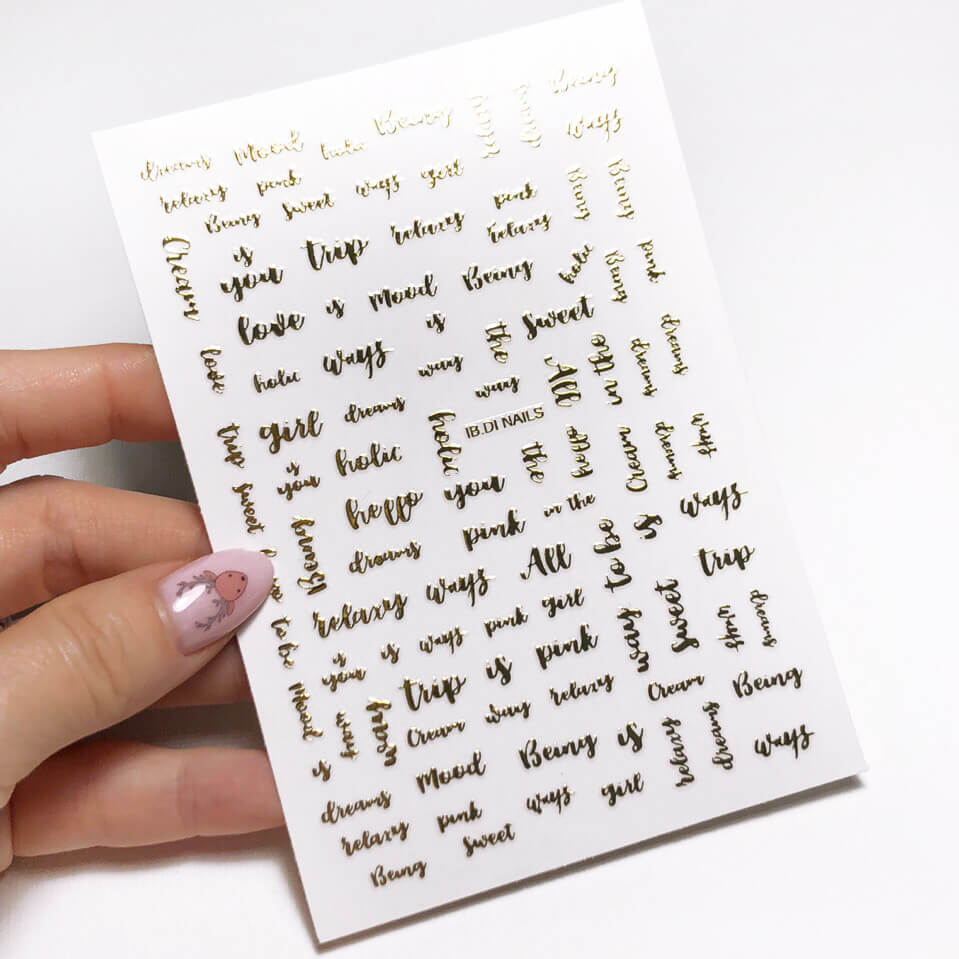 dreams Mood holic Being Being
relaxy pink ways girl ways
Being sweet pink Being Being
Cream is trip relaxy relaxy
you Being holic Being pink
love is Mood sweet
love ways is the dreams dreams
holic way way All in the
girl dreams holic IB.DI NAILS
trip is holic the hello Cream dreams
you
sweet hello you in the ways
Being dreams pink is
relaxy ways All to be trip
is is ways pink girl way sweet dreams
your
to be trip is pink
Mood way Cream way relaxy Cream Being
is Mood Being is relaxy dreams ways
dreams pink ways girl
relaxy sweet
Being